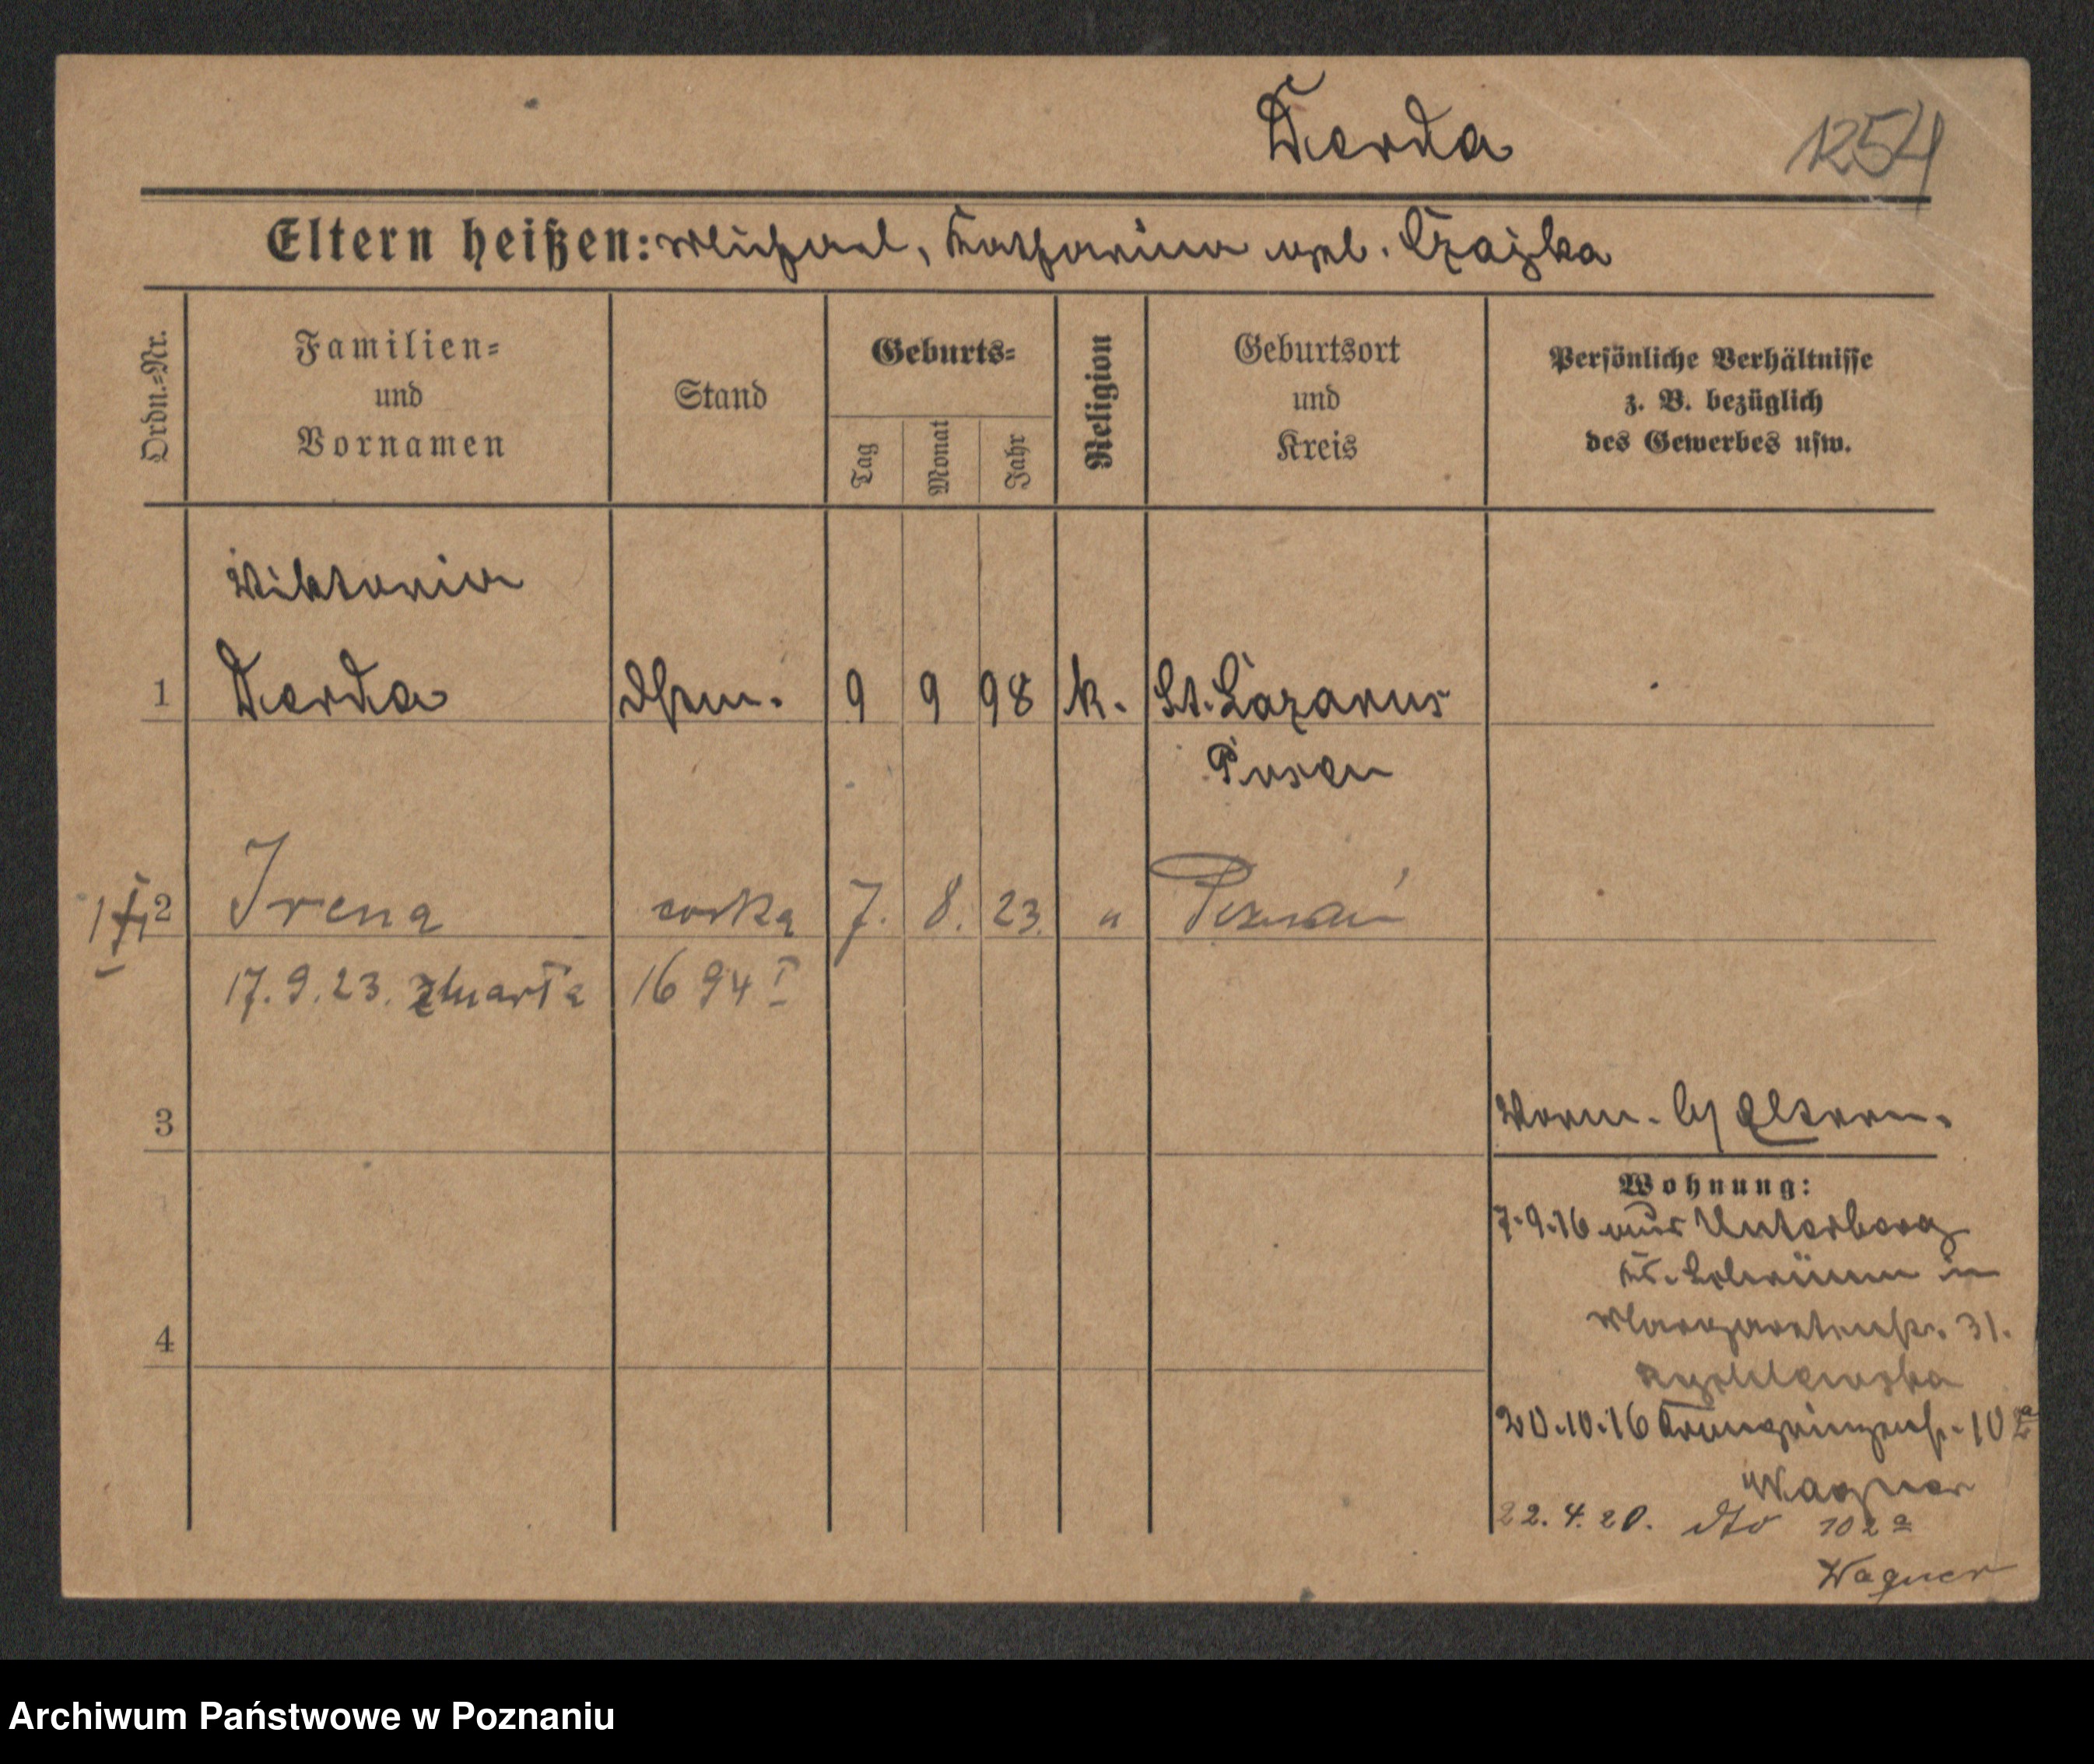 Derda
1254
Eltern heißen: Michael, Katharina geb. Czajka
Ordn.=Nr.
Familien=
und
Vornamen
Stand
Geburts=
Tag
Monat
Jahr
Religion
Geburtsort
und
Kreis
Persönliche Verhältnisse
z. B. bezüglich
des Gewerbes usw.
Wiktoria
1 Derda 9 9 98 k. St. Lazarus
Posen
2 Irena corka 7. 8. 23. " Poznań
17.9.23. zmarła 1694 I
3
Eltern.
Wohnung:
7.9.16 aus Unterberg
in
Margaretenstr. 31.
4
20.10.16 Kronprinzenstr. 102a
Wagner
22.4.20. dto 102a
Wagner
Archiwum Państwowe w Poznaniu